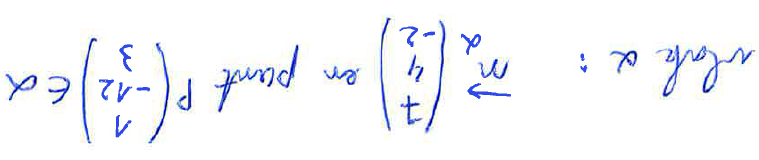 vlak α : n⃗_α (7 4 -2) en punt P (1 -12 3) ∈ α